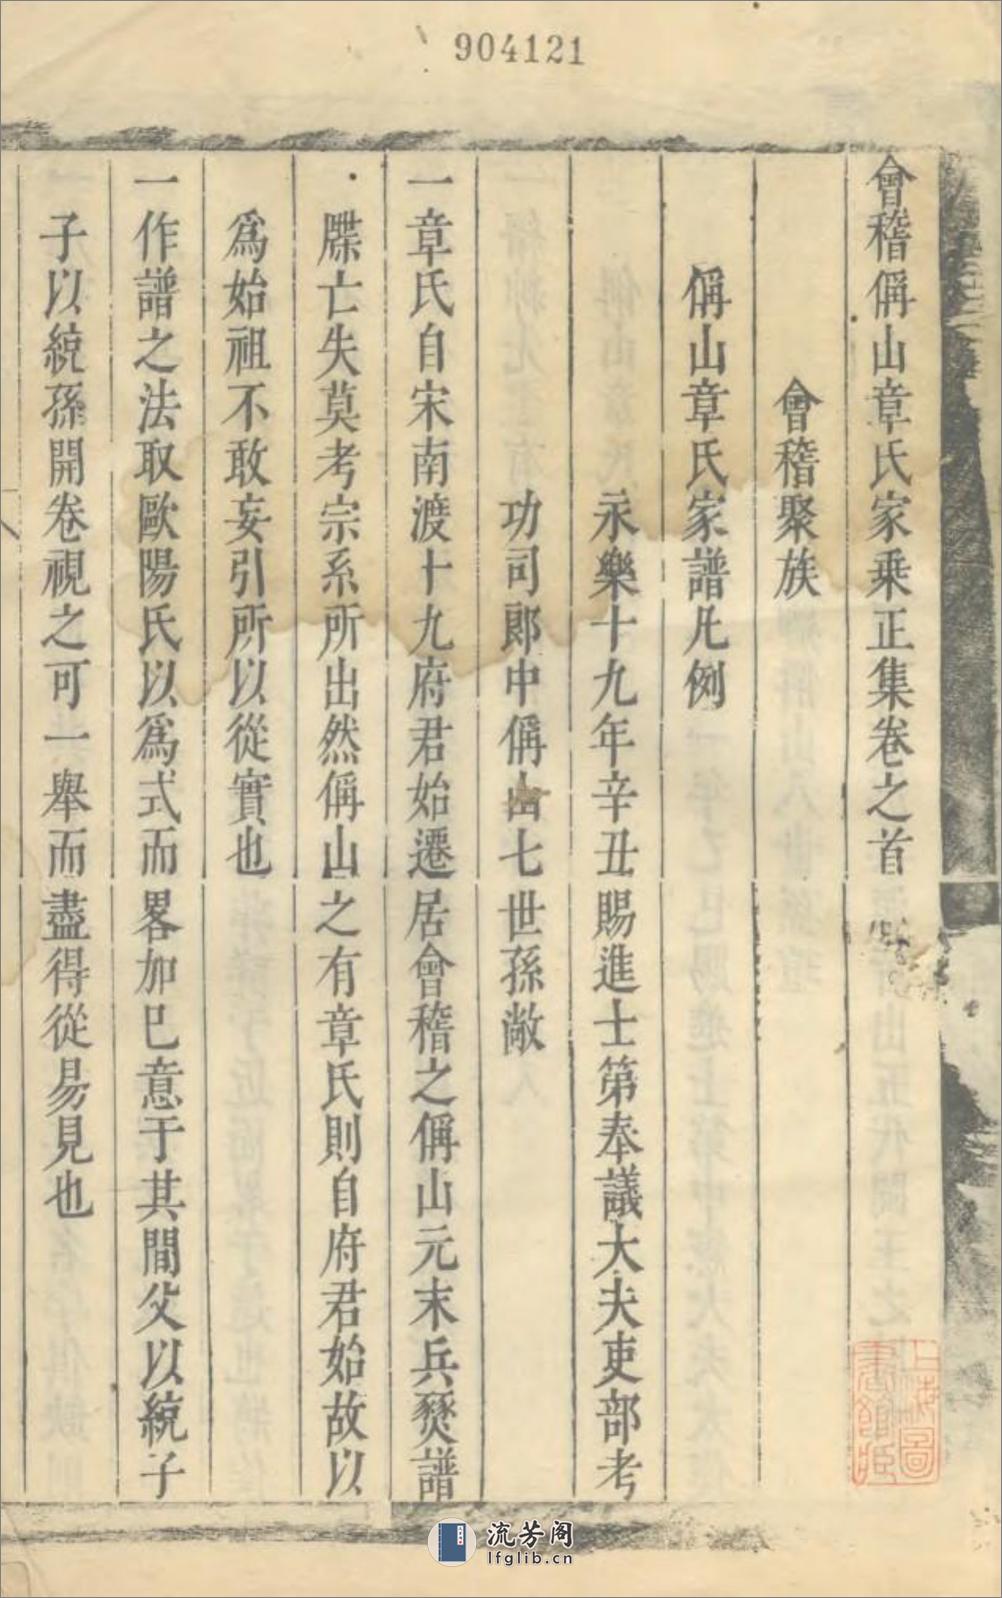 904121
會稽偁山章氏家乗正集卷之首
會稽聚族
偁山章氏家譜凡例
永樂十九年辛丑賜進士第奉議大夫吏部考
功司郎中偁山七世孫敞
一章氏自宋南渡十九府君始遷居會稽之偁山元末兵燹譜
牒亡失莫考宗系所出然偁山之有章氏則自府君始故以
爲始祖不敢妄引所以從實也
一作譜之法取歐陽氏以爲式而畧加已意于其間父以統子
子以統孫開卷視之可一舉而盡得從易見也
上海圖
書館藏
流芳阁
lfglib.cn